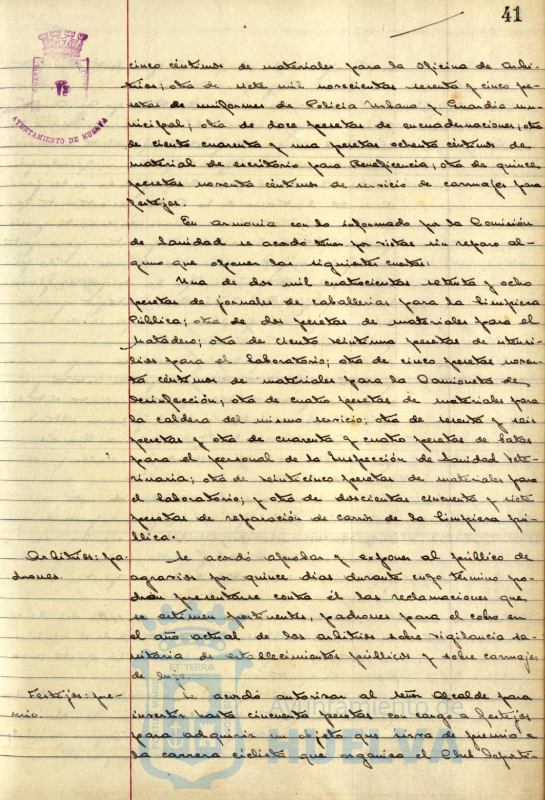 41
AYUNTAMIENTO DE HUELVA
cinco céntimos de materiales para la Oficina de Arbi-
trios; otra de siete mil novecientas sesenta y cinco pe-
setas de uniformes de Policía Urbana y Guardia mu-
nicipal; otra de doce pesetas de encuadernaciones; otra
de ciento cuarenta y una pesetas ochenta céntimos de
material de escritorio para Beneficencia; otra de quince
pesetas noventa céntimos de servicio de carruajes para
festejos.
En armonía con lo informado por la Comisión
de Sanidad se acordó tener por vistas sin reparo al-
guno que oponer las siguientes cuentas:
Una de dos mil cuatrocientas setenta y ocho
pesetas de jornales de caballerías para la Limpieza
Pública; otra de dos pesetas de materiales para el
Matadero; otra de ciento veintiuna pesetas de utensi-
lios para el Laboratorio; otra de cinco pesetas noven-
ta céntimos de materiales para la Camioneta de
Desinfección; otra de cuatro pesetas de materiales para
la caldera del mismo servicio; otra de sesenta y seis
pesetas y otra de cuarenta y cuatro pesetas de batas
para el personal de la Inspección de Sanidad Vete-
rinaria; otra de veinticinco pesetas de materiales para
el laboratorio; y otra de doscientas cincuenta y siete
pesetas de reparación de carros de la Limpieza pú-
blica.
Arbitrios: pa-
drones.
Se acordó aprobar y exponer al público de
agravios por quince días durante cuyo término po-
drán presentarse contra él las reclamaciones que
se estimen pertinentes, padrones para el cobro en
el año actual de los arbitrios sobre vigilancia sa-
nitaria de establecimientos públicos y sobre carruajes
de lujo.
Festejos: pre-
mio.
Se acordó autorizar al señor Alcalde para
invertir hasta cincuenta pesetas con cargo a festejos
para adquirir un objeto que sirva de premio a
la carrera ciclista que organiza el Club Deporti-
Ayuntamiento de
HUELVA